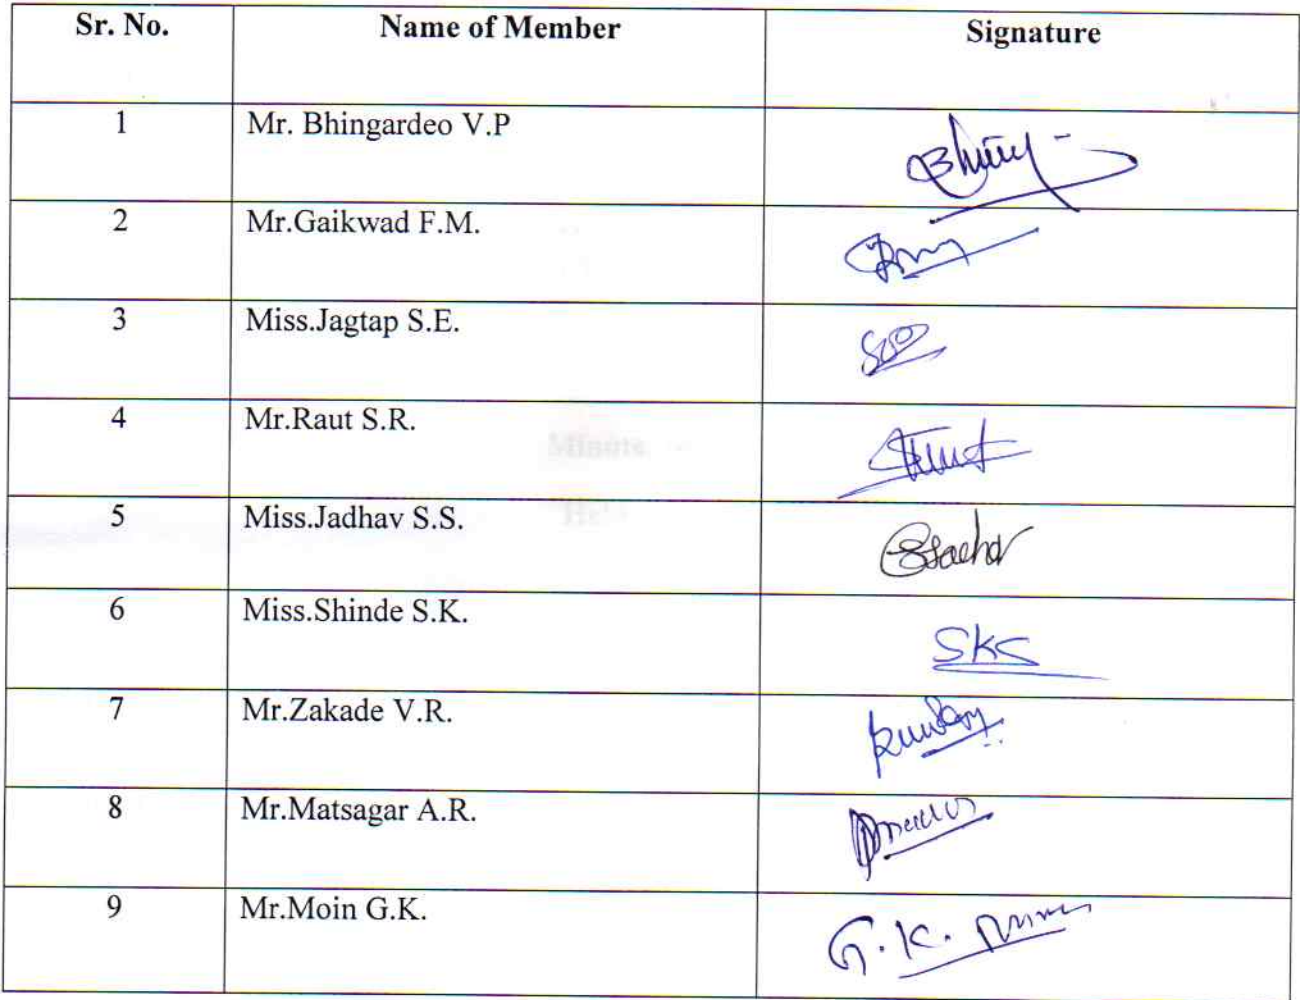 Sr. No. Name of Member Signature
1 Mr. Bhingardeo V.P
2 Mr.Gaikwad F.M.
3 Miss.Jagtap S.E.
4 Mr.Raut S.R.
5 Miss.Jadhav S.S.
6 Miss.Shinde S.K. SKS
7 Mr.Zakade V.R.
8 Mr.Matsagar A.R.
9 Mr.Moin G.K. G.K.